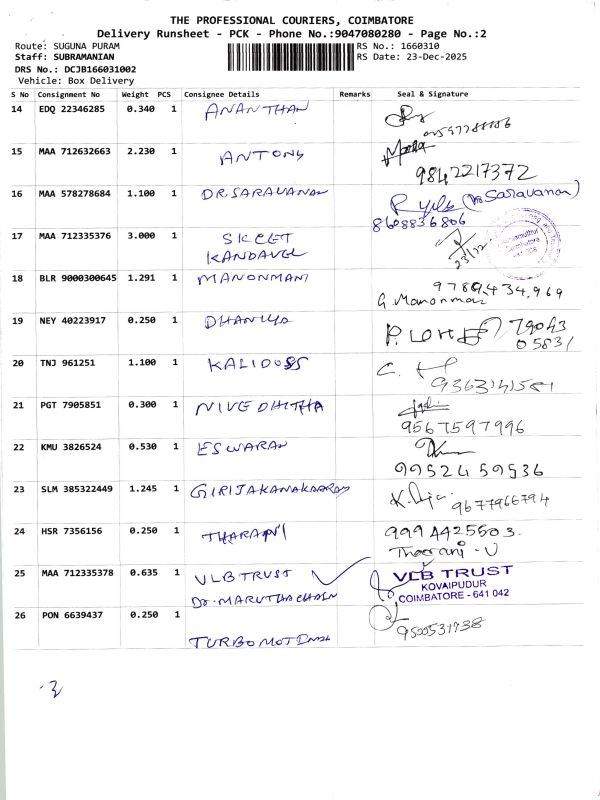 THE PROFESSIONAL COURIERS, COIMBATORE
Delivery Runsheet - PCK - Phone No.:9047080280 - Page No.:2
Route: SUGUNA PURAM RS No.: 1660310
Staff: SUBRAMANIAN RS Date: 23-Dec-2025
DRS No.: DCJB166031002
Vehicle: Box Delivery
S No Consignment No Weight PCS Consignee Details Remarks Seal & Signature
14 EDQ 22346285 0.340 1 ANANTHAN
15 MAA 712632663 2.230 1 ANTONY
9842217372
16 MAA 578278684 1.100 1 DR.SARAVANAN
8608836806
17 MAA 712335376 3.000 1 SKCET
KANDAVEL 23/12
18 BLR 9000300645 1.291 1 MANONMANI 9789434,969
G. Manonmani
19 NEY 40223917 0.250 1 DHANIYA 79043
05831
20 TNJ 961251 1.100 1 KALIDOSS
9363141581
21 PGT 7905851 0.300 1 NIVEDHITHA
9567597996
22 KMU 3826524 0.530 1 ESWARAN
9952459536
23 SLM 385322449 1.245 1 9677966794
24 HSR 7356156 0.250 1 THARANI 9994425503.
Thaarani - U
25 MAA 712335378 0.635 1 VLB TRUST VLB TRUST
KOVAIPUDUR
COIMBATORE - 641 042
26 PON 6639437 0.250 1 9500531738